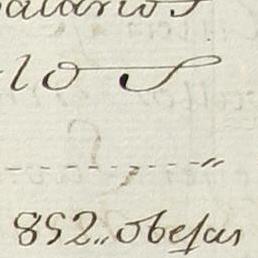 alarios
los
852,, obejas